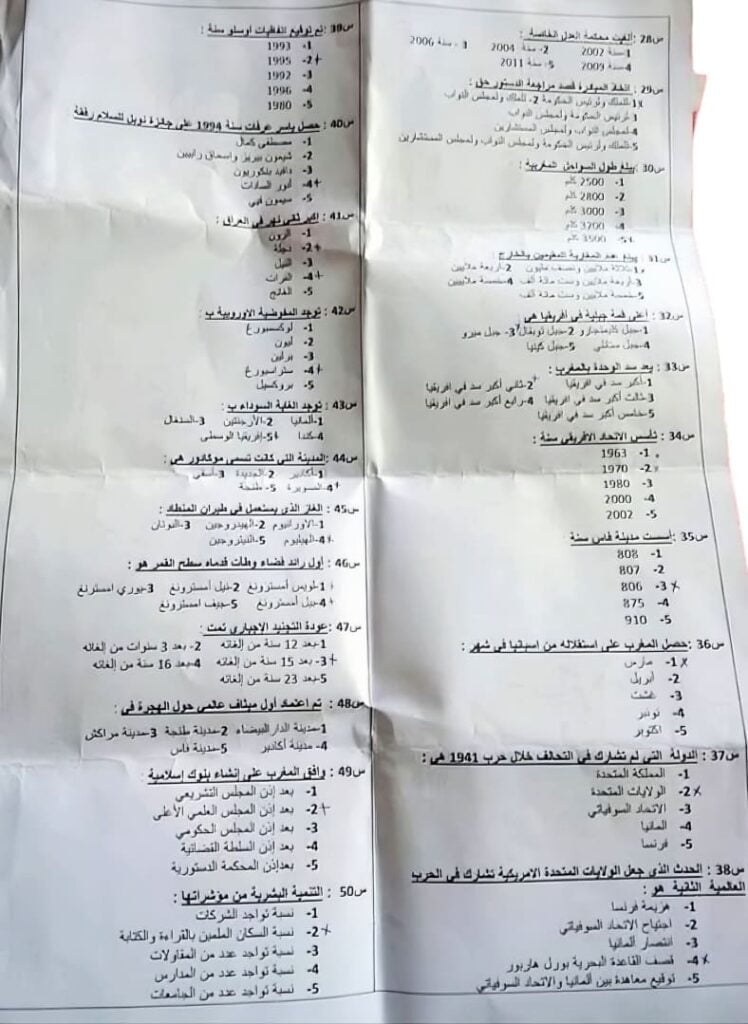 س28: ألغيت محكمة العدل الخاصة :
1-سنة 2002 2- سنة 2004 3 - سنة 2006
4-سنة 2009 5- سنة 2011
س29: اتخاذ المبادرة قصد مراجعة الدستور حق :
1-للملك ولرئيس الحكومة 2- للملك ولمجلس النواب
3 لرئيس الحكومة ولمجلس النواب
4-لمجلس النواب ولمجلس المستشارين
5-للملك ولرئيس الحكومة ولمجلس النواب ولمجلس المستشارين
س30 : يبلغ طول السواحل المغربية :
1- 2500 كلم
2- 2800 كلم
3- 3000 كلم
4- 3200 كلم
5- 3500 كلم
س31 : يبلغ عدد المغاربة المقيمين بالخارج :
1-ثلاثة ملايين ونصف مليون 2-أربعة ملايين
3-أربعة ملايين وست مائة ألف 4-خمسة ملايين
5-خمسة ملايين وست مائة ألف
س32 : أعلى قمة جبلية في أفريقيا هي :
1-جبل كليمنجارو 2-جبل توبقال 3- جبل ميرو
4-جبل ستانلي 5-جبل كينيا
س33 : يعد سد الوحدة بالمغرب :
1-أكبر سد في افريقيا 2-ثاني أكبر سد في افريقيا
3-ثالث أكبر سد في افريقيا 4-رابع أكبر سد في أفريقيا
5-خامس أكبر سد في افريقيا
س34 : تأسس الاتحاد الافريقي سنة :
1- 1963
2- 1970
3- 1980
4- 2000
5- 2002
س35 :أسست مدينة فاس سنة
1- 808
2- 807
3- 806
4- 875
5- 910
س36 :حصل المغرب على استقلاله من اسبانيا في شهر :
1- مارس
2- أبريل
3- غشت
4- نونبر
5- اكتوبر
س37 : الدولة التي لم تشارك في التحالف خلال حرب 1941 هي :
1- المملكة المتحدة
2- الولايات المتحدة
3- الاتحاد السوفياتي
4- المانيا
5- فرنسا
س38 : الحدث الذي جعل الولايات المتحدة الامريكية تشارك في الحرب
العالمية الثانية هو :
1- هزيمة فرنسا
2- اجتياح الاتحاد السوفياتي
3- انتصار ألمانيا
4- قصف القاعدة البحرية بورل هاربور
5- توقيع معاهدة بين ألمانيا والاتحاد السوفياتي
س39 :تم توقيع اتفاقيات اوسلو سنة :
1- 1993
2- 1995
3- 1992
4- 1996
5- 1980
س40 : حصل ياسر عرفات سنة 1994 على جائزة نوبل للسلام رفقة
1- مصطفى كمال
2- شيمون بيريز واسحاق رابين
3- دافيد بنكوريون
4- أنور السادات
5- سيمون فيي
س41 : اكبر ثاني نهر في العراق :
1- الرون
2- دجلة
3- النيل
4- الفرات
5- الغانج
س42 : توجد المفوضية الاوروبية ب :
1- لوكسمبورغ
2- ليون
3- برلين
4- ستراسبورغ
5- بروكسيل
س43 : توجد الغابة السوداء ب :
1-ألمانيا 2-الأرجنتين 3-السنغال
4-كندا 5-إفريقيا الوسطى
س44 :المدينة التي كانت تسمى موكادور هي :
1-أكادير 2-الجديدة 3-أسفي
4-الصويرة 5- طنجة
س45 : الغاز الذي يستعمل في طيران المنطاد :
1-الأورانيوم 2-الهيدروجين 3-البوتان
4-الهيليوم 5-النيتروجين
س46 : أول رائد فضاء وطأت قدماه سطح القمر هو :
1-لويس أمسترونغ 2-نيل أمسترونغ 3-يوري امسترنغ
4-بيل أمسترونغ 5-جيف امسترونغ
س47 : عودة التجنيد الاجباري تمت :
1-بعد 12 سنة من إلغائه 2- بعد 3 سنوات من إلغائه
3-بعد 15 سنة من إلغائه 4-بعد 16 سنة من إلغائه
5-بعد 23 سنة من إلغائه
س48 : تم اعتماد أول ميثاق عالمي حول الهجرة في :
1-مدينة الدار البيضاء 2-مدينة طنجة 3-مدينة مراكش
4- مدينة أكادير 5-مدينة فاس
س49 : وافق المغرب على إنشاء بنوك إسلامية :
1- بعد إذن المجلس التشريعي
2- بعد إذن المجلس العلمي الأعلى
3- بعد إذن المجلس الحكومي
4- بعد إذن السلطة القضائية
5- بعدإذن المحكمة الدستورية
س50 : التنمية البشرية من مؤشراتها :
1- نسبة تواجد الشركات
2- نسبة السكان الملمين بالقراءة والكتابة
3- نسبة تواجد عدد من المقاولات
4- نسبة تواجد عدد من المدارس
5- نسبة تواجد عدد من الجامعات